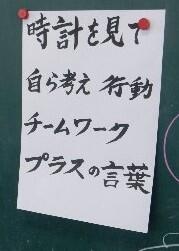 時計を見て
自ら考え 行動
チームワーク
プラスの言葉